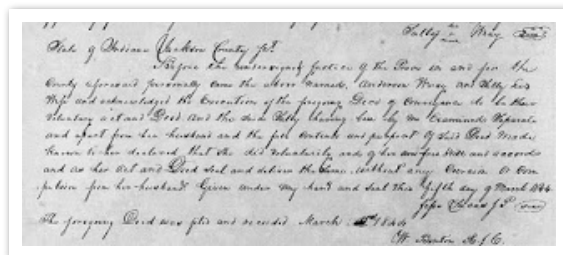 Sally her mark Wray seal
State of Indiana Jackson County Sct.
Before the undersigned Justice of the Peace in and for the
County aforesaid personally came the above named, Anderson Wray and Sally his
Wife and acknowledged the Execution of the foregoing Deed of Conveyance to be their
Voluntary act and Deed And the said Sally having been by me Examined Separate
and apart from her husband and the full Contents and purport of Said Deed Made
known to her declared that she did voluntarily and of her own free Will and accord
and as her Act and Deed Seal and deliver the Same without any Coercion or Com
pulsion from her husband Given under my hand and Seal this fifth day of March 1844
J.P. seal
The foregoing Deed was filed and recorded March 1844
W. Benton R.J.C.